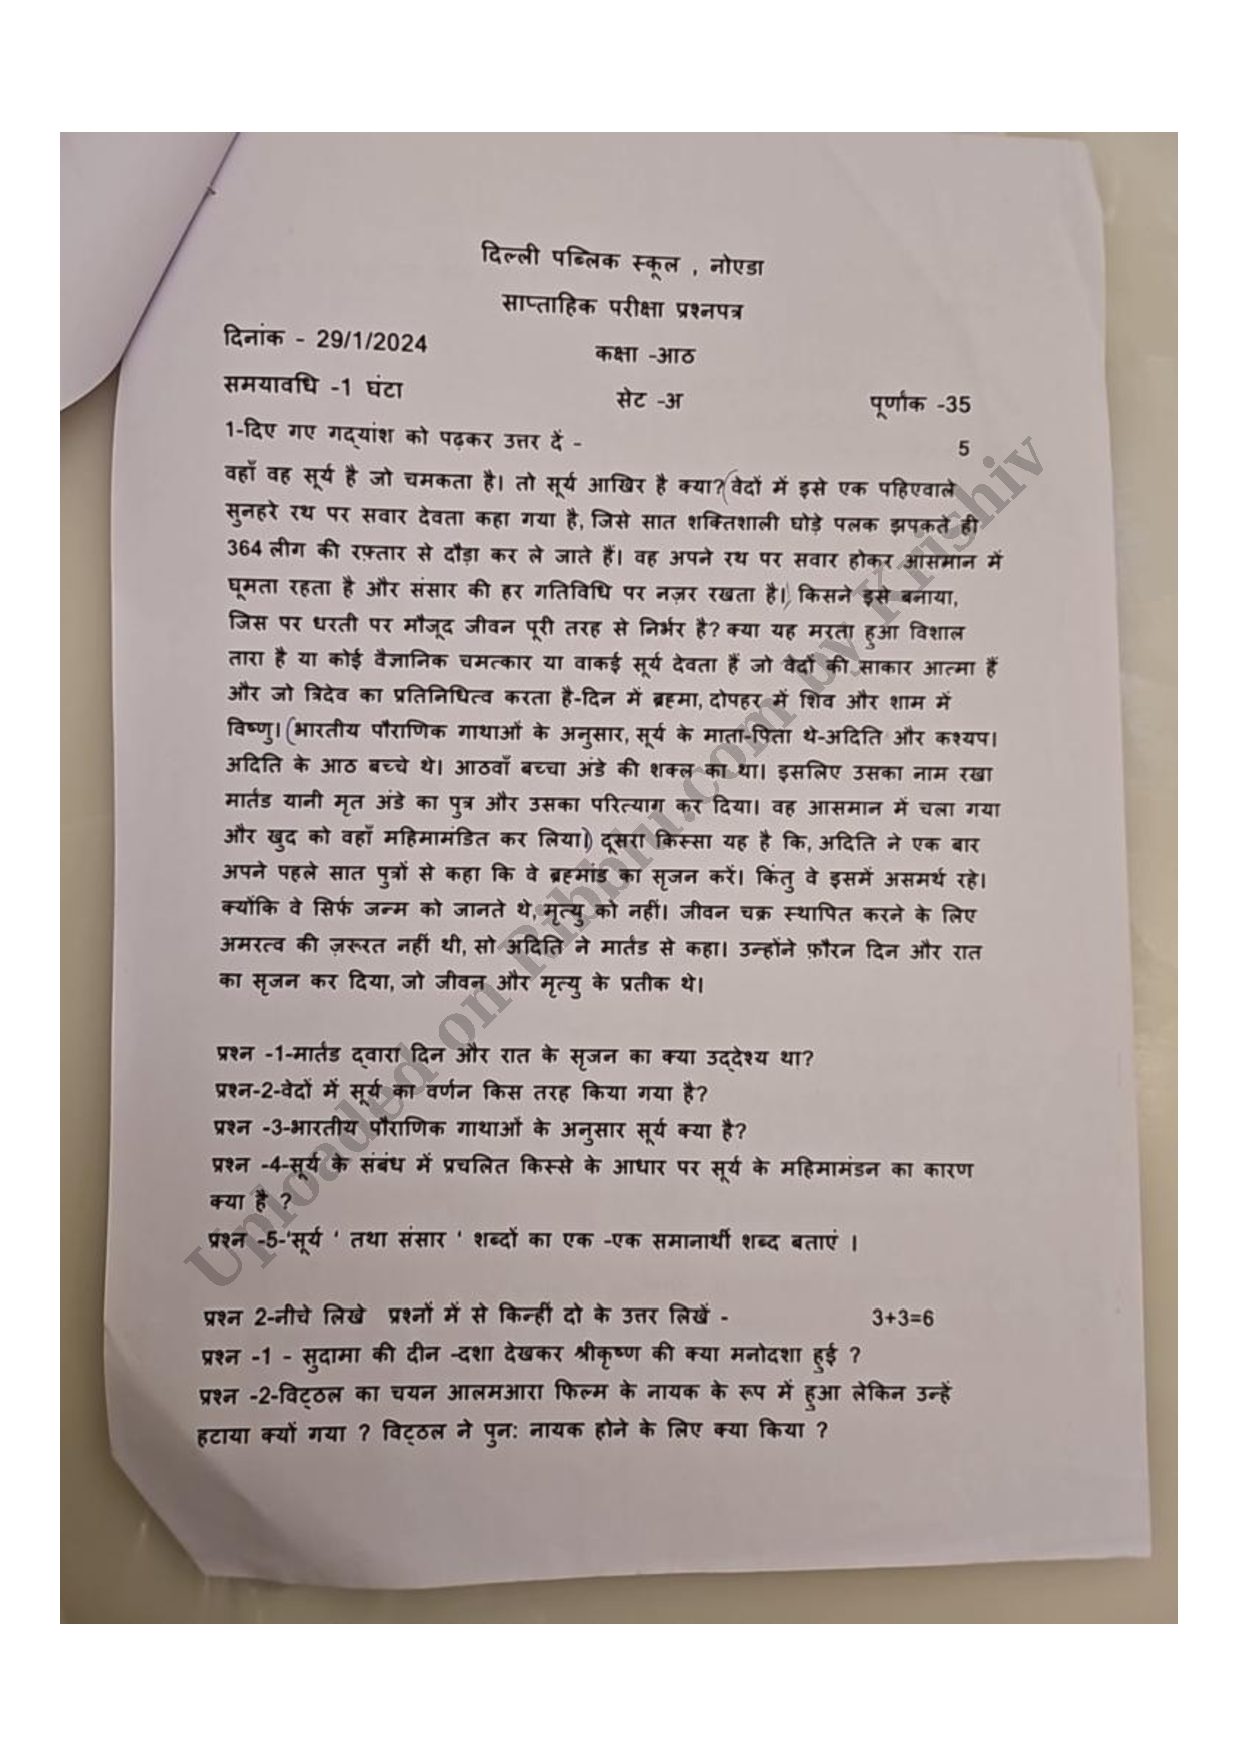 दिल्ली पब्लिक स्कूल , नोएडा
साप्ताहिक परीक्षा प्रश्नपत्र
दिनांक - 29/1/2024
कक्षा -आठ
समयावधि -1 घंटा
सेट -अ
पूर्णांक -35
1-दिए गए गद्यांश को पढ़कर उत्तर दें -
5
वहाँ वह सूर्य है जो चमकता है। तो सूर्य आखिर है क्या? वेदों में इसे एक पहिएवाले
सुनहरे रथ पर सवार देवता कहा गया है, जिसे सात शक्तिशाली घोड़े पलक झपकते ही
364 लीग की रफ़्तार से दौड़ा कर ले जाते हैं। वह अपने रथ पर सवार होकर आसमान में
घूमता रहता है और संसार की हर गतिविधि पर नज़र रखता है। किसने इसे बनाया,
जिस पर धरती पर मौजूद जीवन पूरी तरह से निर्भर है? क्या यह मरता हुआ विशाल
तारा है या कोई वैज्ञानिक चमत्कार या वाकई सूर्य देवता हैं जो वेदों की साकार आत्मा हैं
और जो त्रिदेव का प्रतिनिधित्व करता है-दिन में ब्रह्मा, दोपहर में शिव और शाम में
विष्णु। (भारतीय पौराणिक गाथाओं के अनुसार, सूर्य के माता-पिता थे-अदिति और कश्यप।
अदिति के आठ बच्चे थे। आठवाँ बच्चा अंडे की शक्ल का था। इसलिए उसका नाम रखा
मार्तंड यानी मृत अंडे का पुत्र और उसका परित्याग कर दिया। वह आसमान में चला गया
और खुद को वहाँ महिमामंडित कर लिया।) दूसरा किस्सा यह है कि, अदिति ने एक बार
अपने पहले सात पुत्रों से कहा कि वे ब्रह्मांड का सृजन करें। किंतु वे इसमें असमर्थ रहे।
क्योंकि वे सिर्फ जन्म को जानते थे, मृत्यु को नहीं। जीवन चक्र स्थापित करने के लिए
अमरत्व की ज़रूरत नहीं थी, सो अदिति ने मार्तंड से कहा। उन्होंने फ़ौरन दिन और रात
का सृजन कर दिया, जो जीवन और मृत्यु के प्रतीक थे।
प्रश्न -1-मार्तंड द्वारा दिन और रात के सृजन का क्या उद्देश्य था?
प्रश्न-2-वेदों में सूर्य का वर्णन किस तरह किया गया है?
प्रश्न -3-भारतीय पौराणिक गाथाओं के अनुसार सूर्य क्या है?
प्रश्न -4-सूर्य के संबंध में प्रचलित किस्से के आधार पर सूर्य के महिमामंडन का कारण
क्या है ?
प्रश्न -5-'सूर्य ' तथा संसार ' शब्दों का एक -एक समानार्थी शब्द बताएं ।
प्रश्न 2-नीचे लिखे प्रश्नों में से किन्हीं दो के उत्तर लिखें -
3+3=6
प्रश्न -1 - सुदामा की दीन -दशा देखकर श्रीकृष्ण की क्या मनोदशा हुई ?
प्रश्न -2-विट्ठल का चयन आलमआरा फिल्म के नायक के रूप में हुआ लेकिन उन्हें
हटाया क्यों गया ? विट्ठल ने पुन: नायक होने के लिए क्या किया ?
Uploaded on Ribblu.com by Krishiv